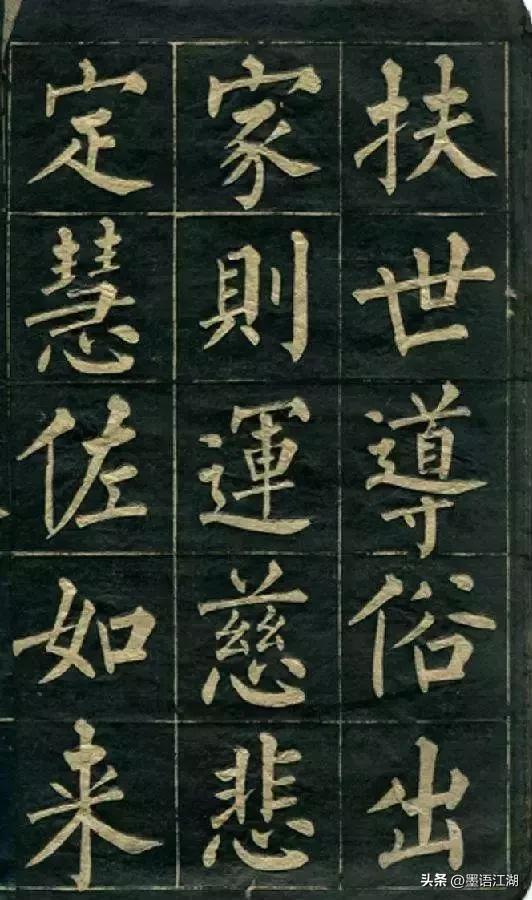 扶世導俗出
家則運慈悲
定慧佐如来
头条 @墨语江湖